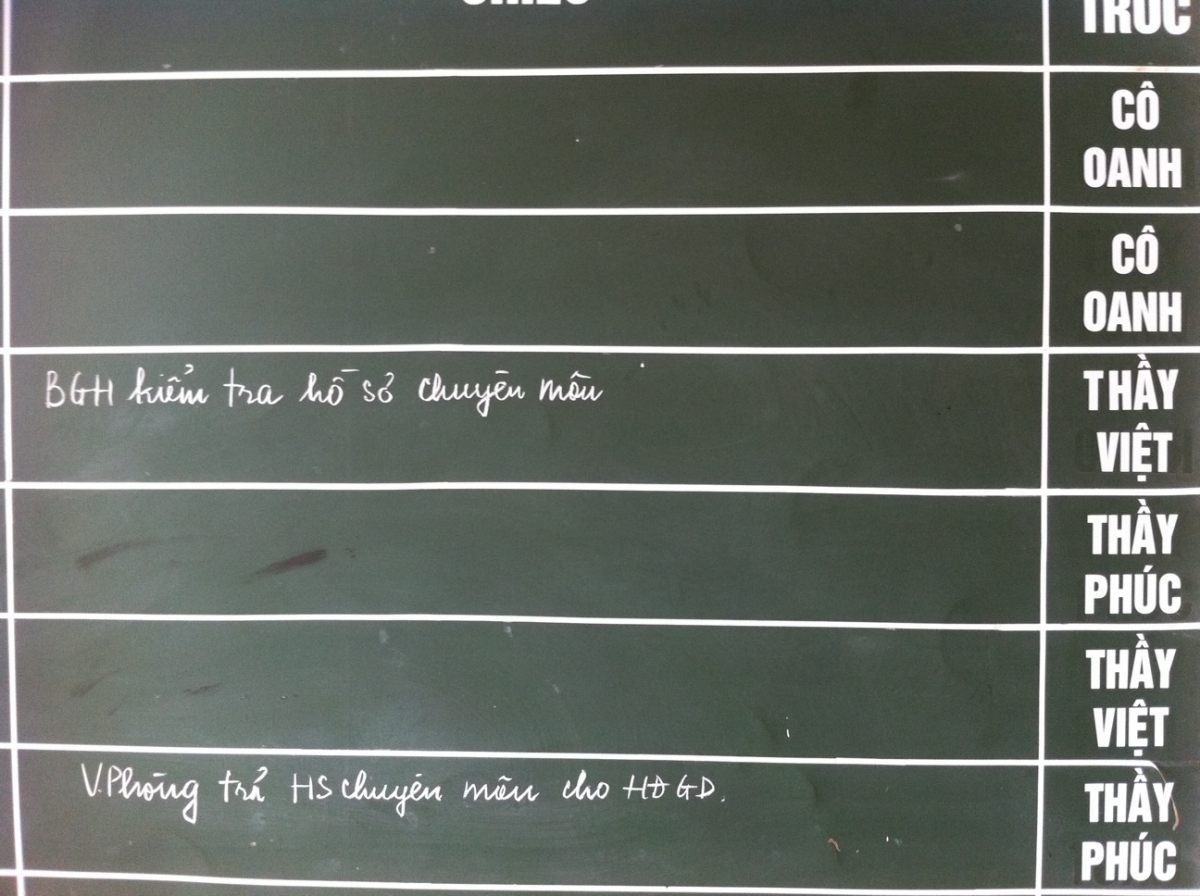 CHIỀU
TRỰC
CÔ
OANH
CÔ
OANH
BGH kiểm tra hồ sơ chuyên môn
THẦY
VIỆT
THẦY
PHÚC
THẦY
VIỆT
V.Phòng trả HS chuyên môn cho HĐGD.
THẦY
PHÚC